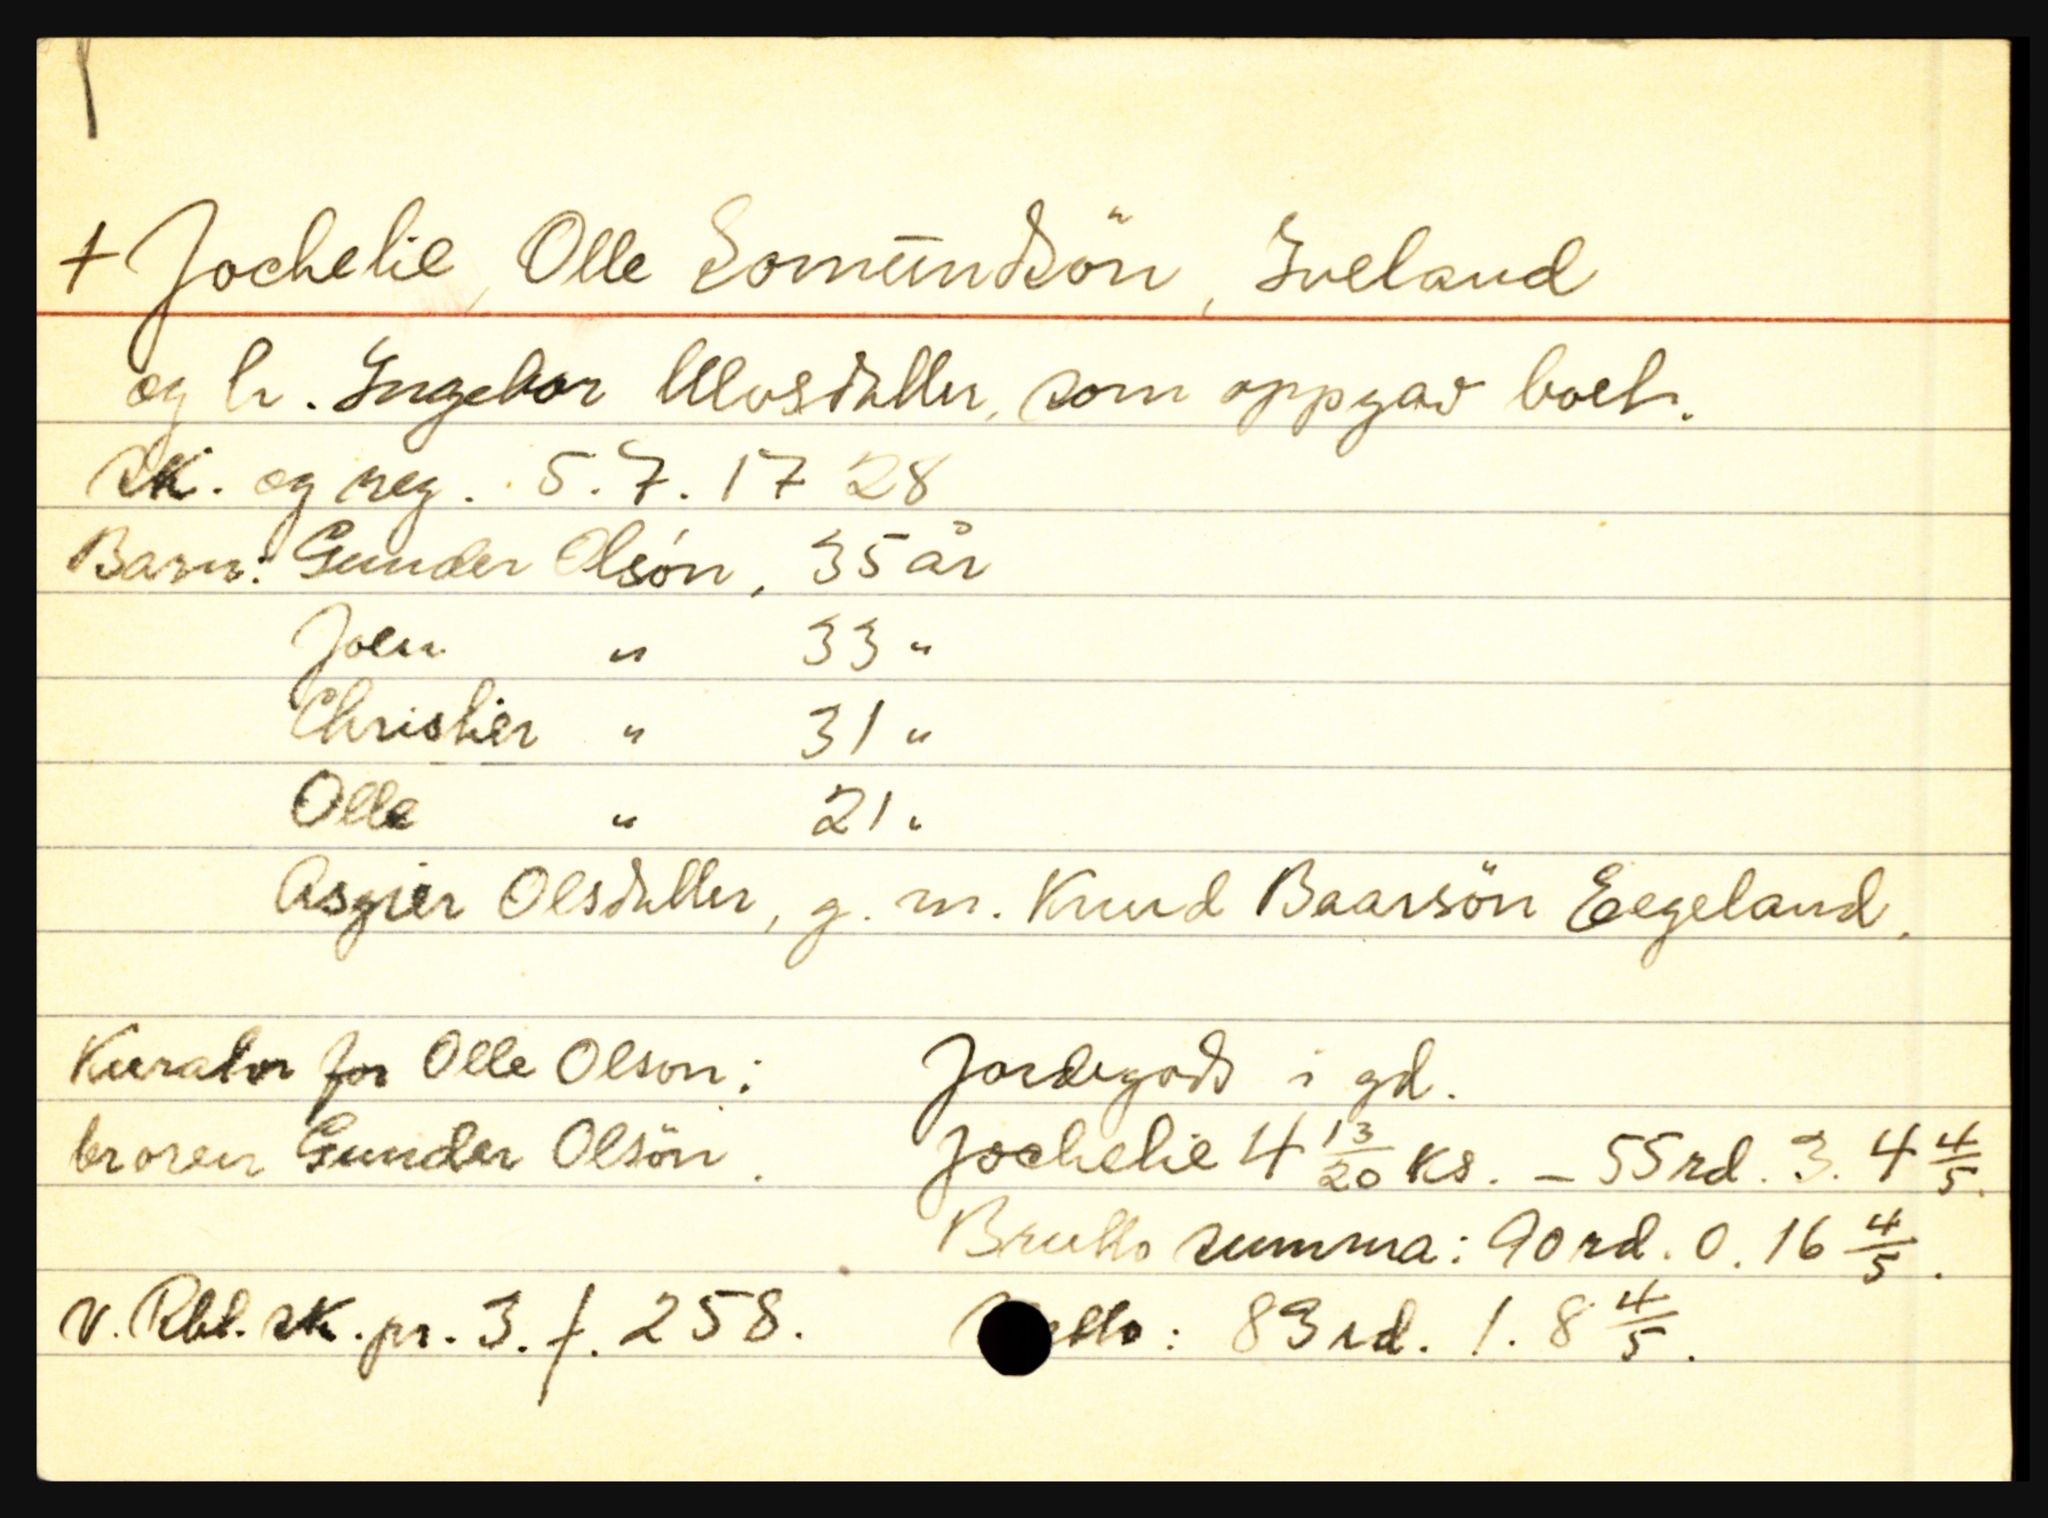 + Jochelie, Olle Somundsön, Iveland
og h. Ingebor Ulvsdatter, som oppgav boet.
sk. og reg. 5.7.1728
Barn: Gunder Olsön, 35 år
Joen " 33 "
Christier " 31 "
Olle " 21 "
Asgier Olsdatter, g. m. Knud Baarsön Eegeland.
Kurator for Olle Olson:
broren Gunder Olsön.
Jordegods i gd.
Jochelie 4 13/20 ks. – 55 rd. 3. 4 4/5.
Brutto summa: 90 rd. 0. 16 4/5.
v. Rbl. sk. pr. 3. f. 258.
Netto: 83 rd. 1. 8 4/5.